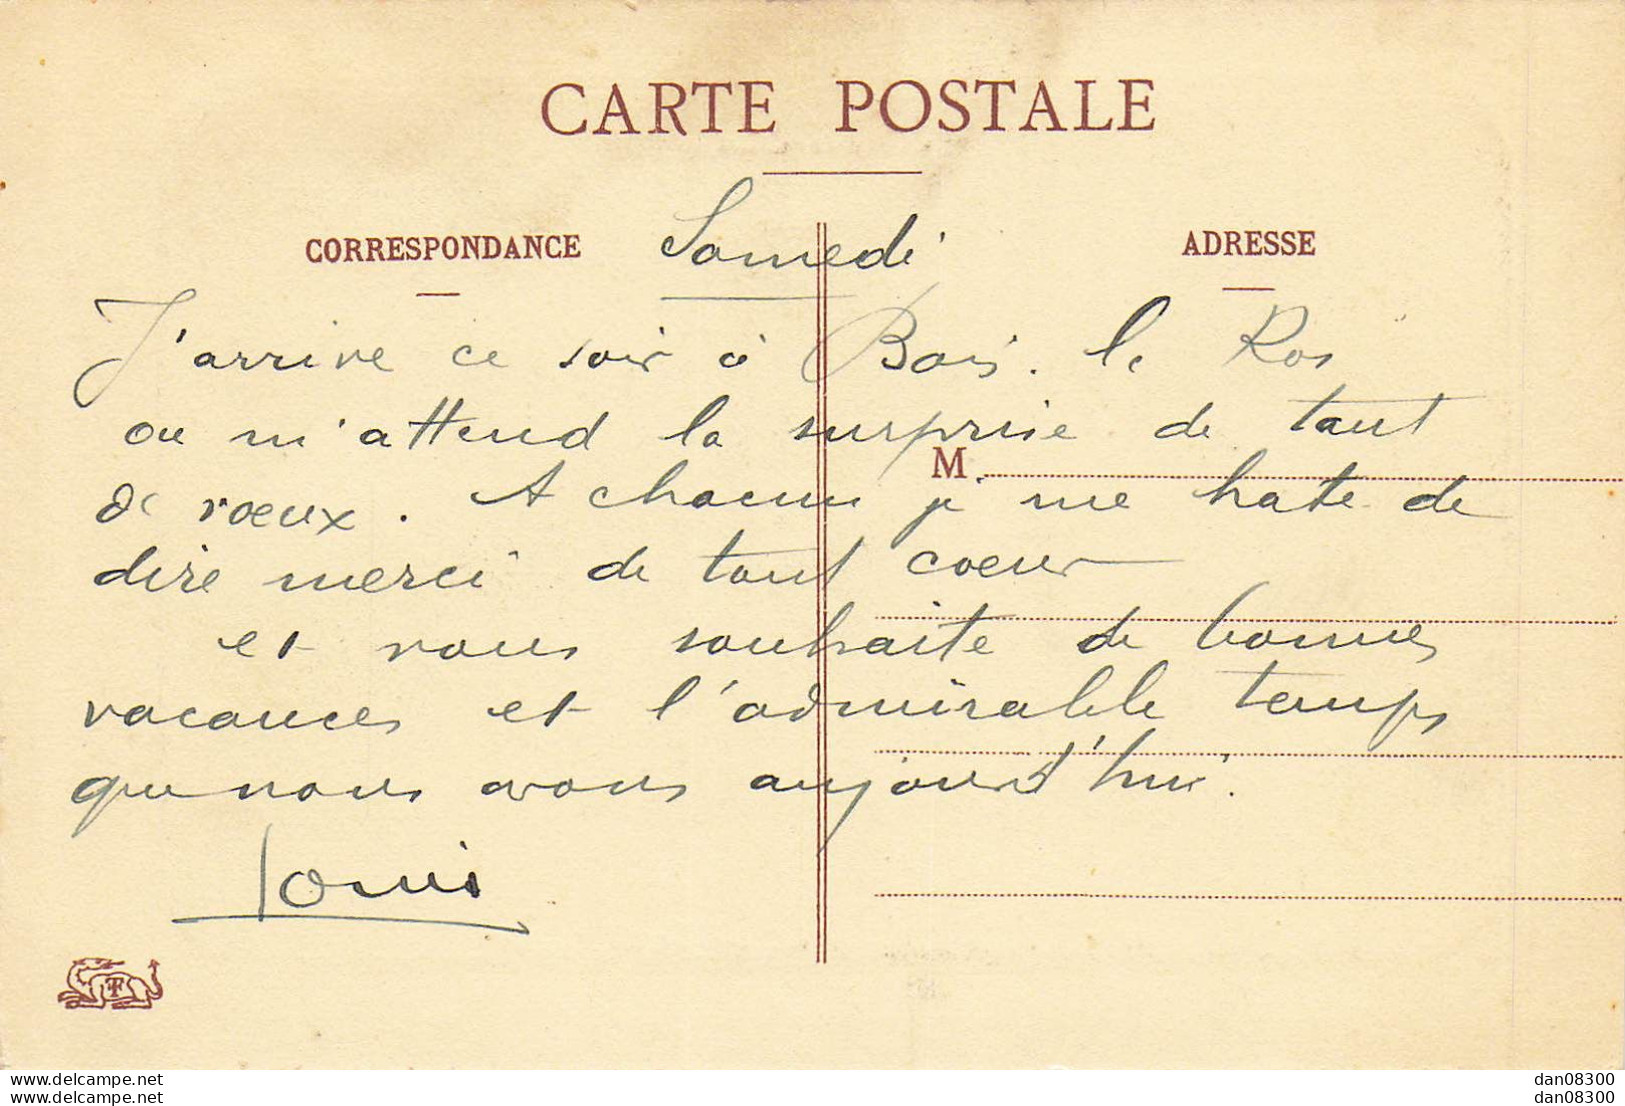 CARTE POSTALE
CORRESPONDANCE Samedi ADRESSE
J'arrive ce soir à Bois. le Roi
ou m'attend la surprise de tant
M
de vœux. A chacun je me hate de
dire merci de tout coeur
et vous souhaite de bonnes
vacances et l'admirable temps
que nous avons aujourd'hui.
Louis
www.delcampe.net
dan08300
dan08300